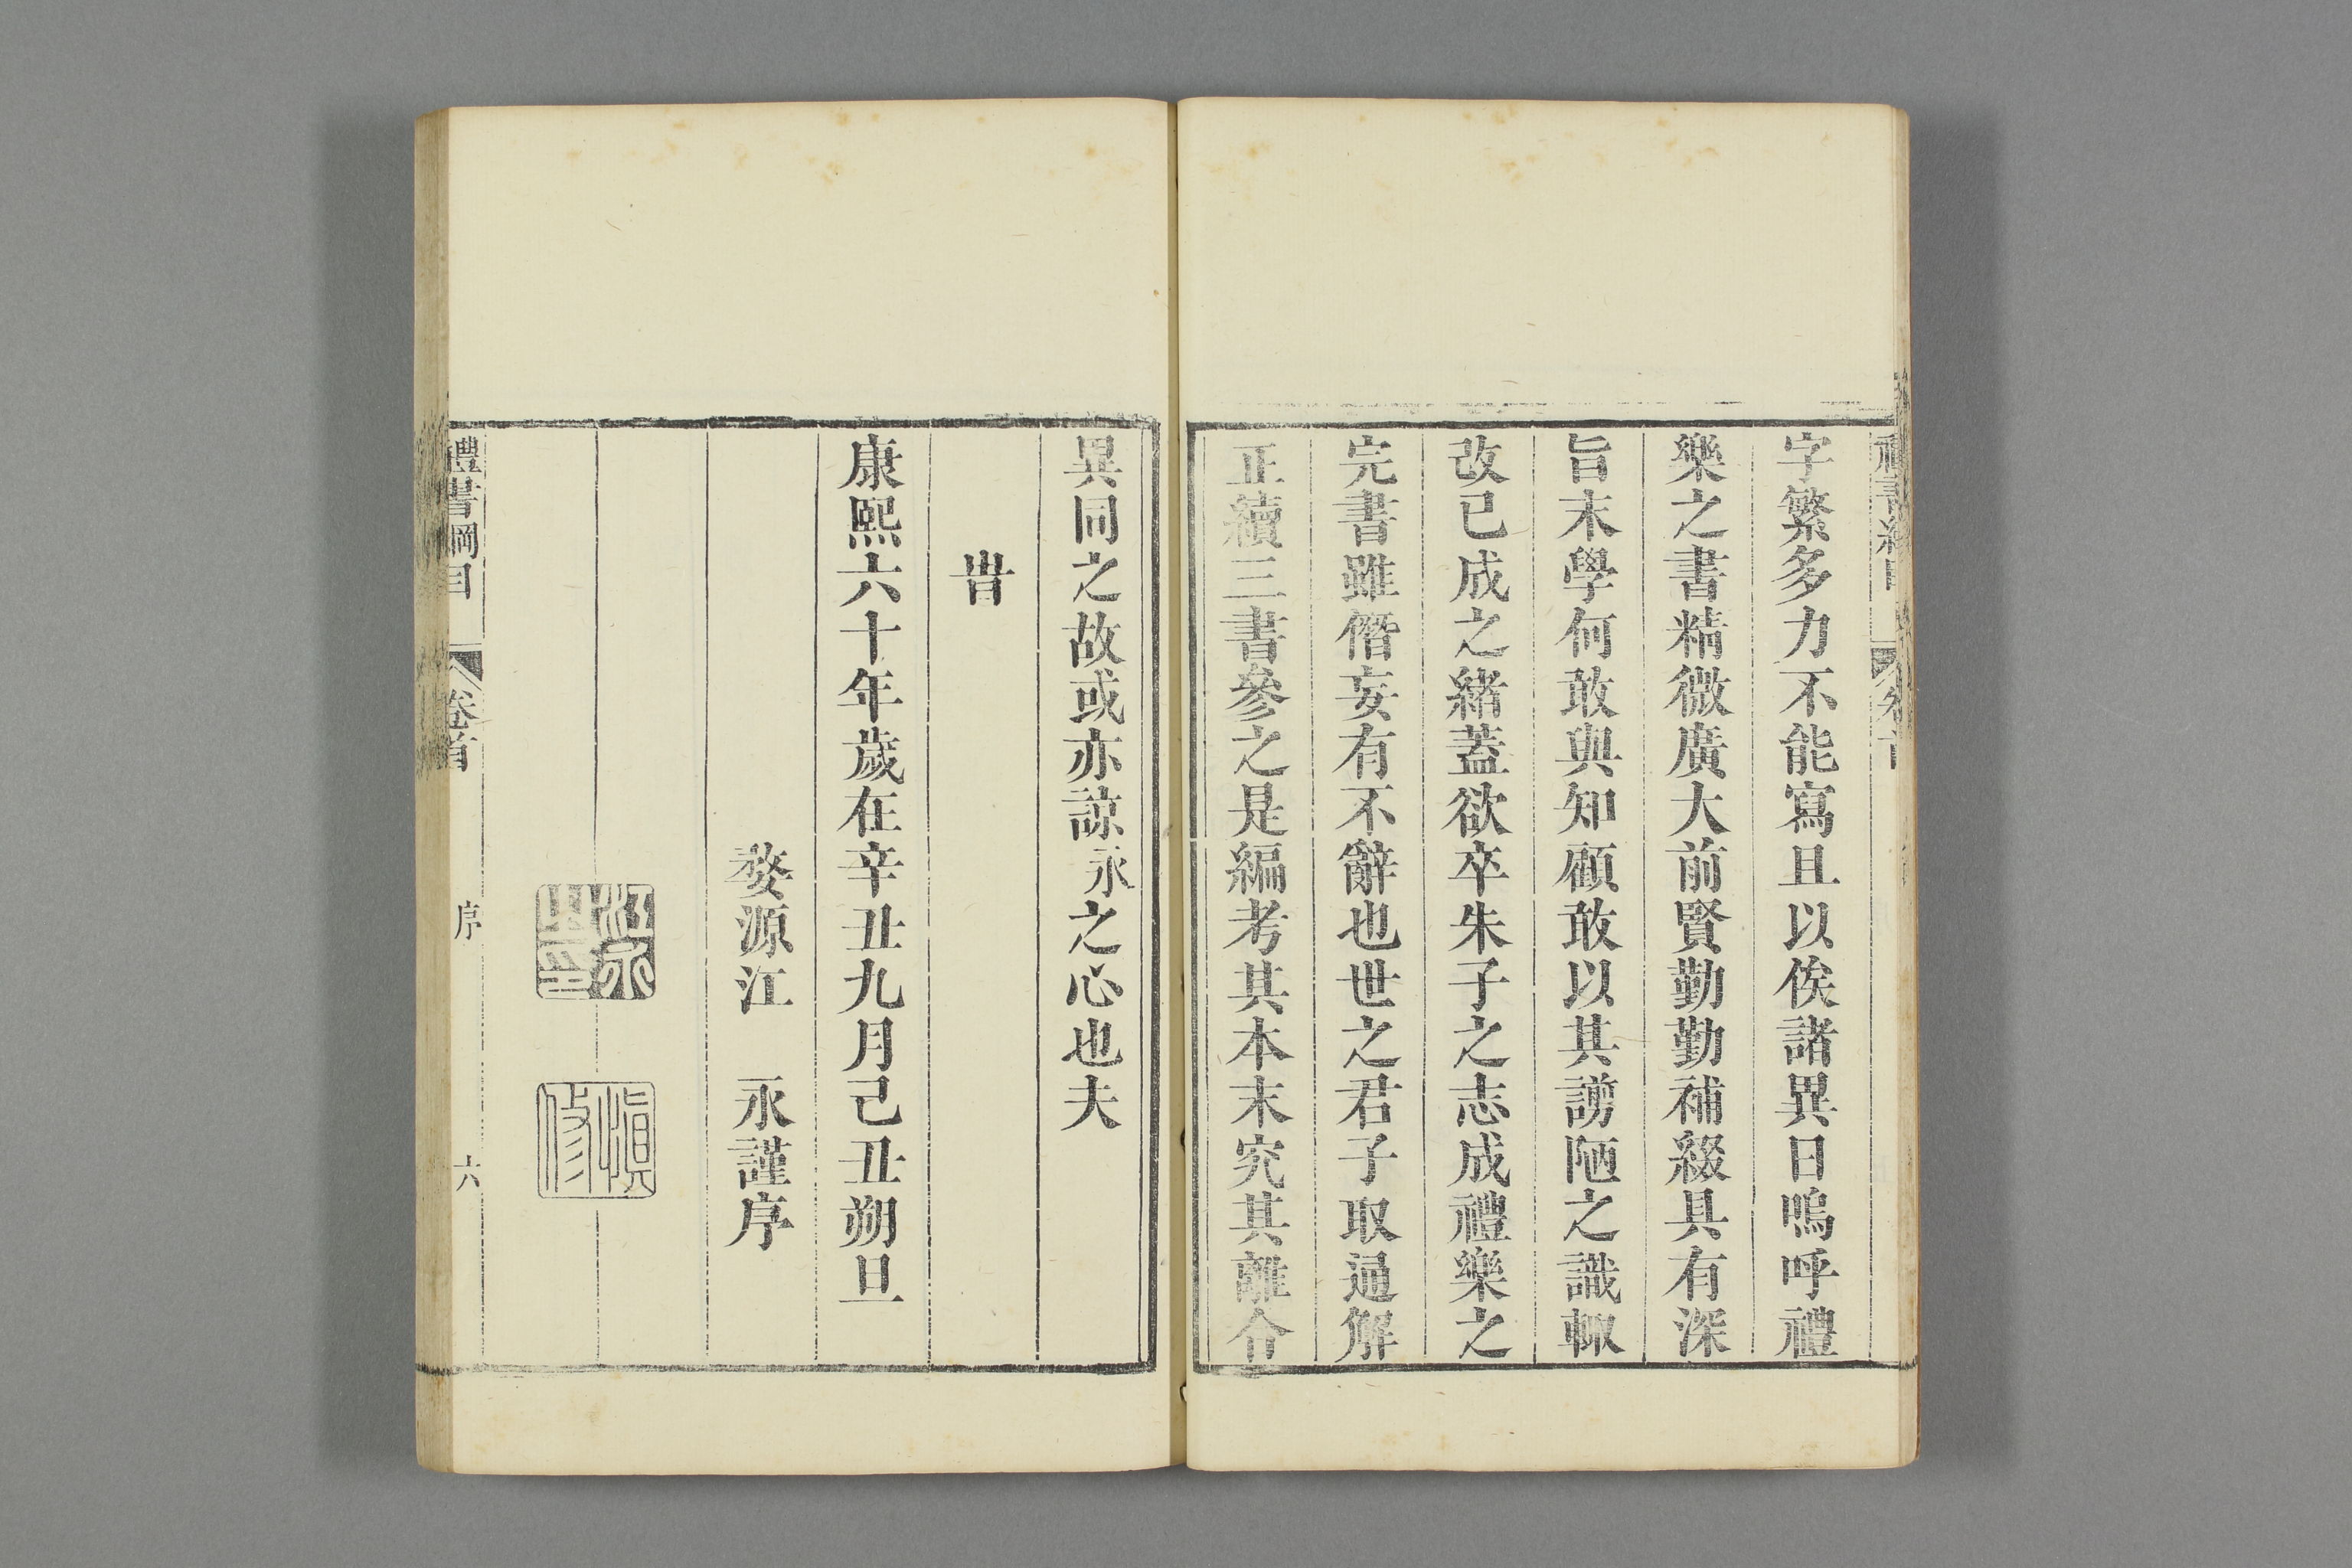 字繁多力不能寫且以俟諸異日嗚呼禮
樂之書精微廣大前賢勤勤補綴具有深
旨末學何敢與知顧敢以其謭陋之識輙
改已成之緒蓋欲卒朱子之志成禮樂之
完書雖僭妄有不辭也世之君子取通解
正續三書參之是編考其本末究其離合
異同之故或亦諒永之心也夫
旹
康熙六十年歲在辛丑九月己丑朔旦
婺源江 永謹序
江永之印
愼修
禮書綱目 卷首 序 六